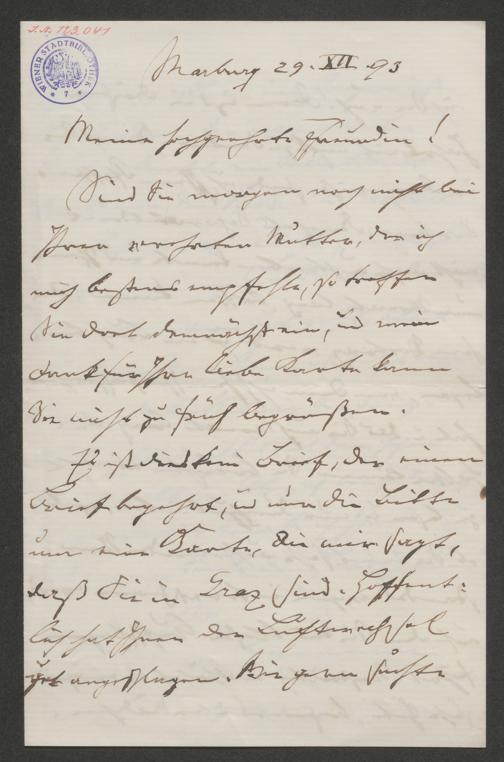 I.N. 123.041
WIENER STADTBIBLIOTHEK
7
Marburg 29. XII. 93
Meine hochgeehrte Freundin!
Sind Sie morgen noch nicht bei
Ihrer verehrten Mutter, der ich
mich bestens empfehle, so treffen
Sie dort demnächst ein, und mein
Dank für Ihre liebe Karte kann
Sie nicht zu früh begrüßen.
Es ist dies kein Brief, der einen
Brief begehrt, und nur die Bitte
um eine Karte, die mir sagt,
daß Sie in Graz sind. Hoffent-
lich hat Ihnen der Luftwechsel
gut angeschlagen. Wie gern suchte